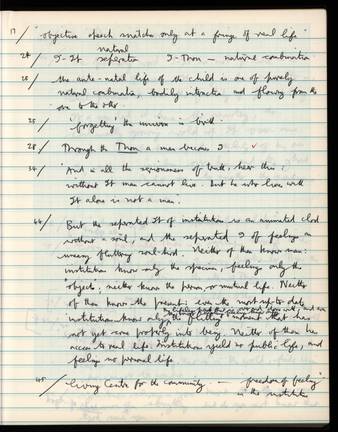 17/ objective speech snatches only at a fringe of real life
24/ I-It separation I-Thou — natural combination
natural
25/ the ante-natal life of the child is one of purely
natural combination, bodily interaction and flowing from the
one to the other
25/ 'forgetting' the universe in birth
28/ Through the Thou a man becomes I ✓
34/ And in all the seriousness of truth, hear this:
without It man cannot live. But he who lives with
It alone is not a man.
44/ But the separated It of institutions is an animated clod
without a soul, and the separated I of feelings an
uneasy fluttering soul-bird. Neither of them knows man:
institutions know only the specimen, feelings only the
object; neither knows the person, or mutual life. Neither
of them knows the present: even the most up-to-date
institutions know only
the fleeting moment that has
not yet come properly into being. Neither of them has
access to real life. Institutions yield no public life, and
feelings no personal life.
45/ living Centre for the community. — freedom of feeling
in the institution